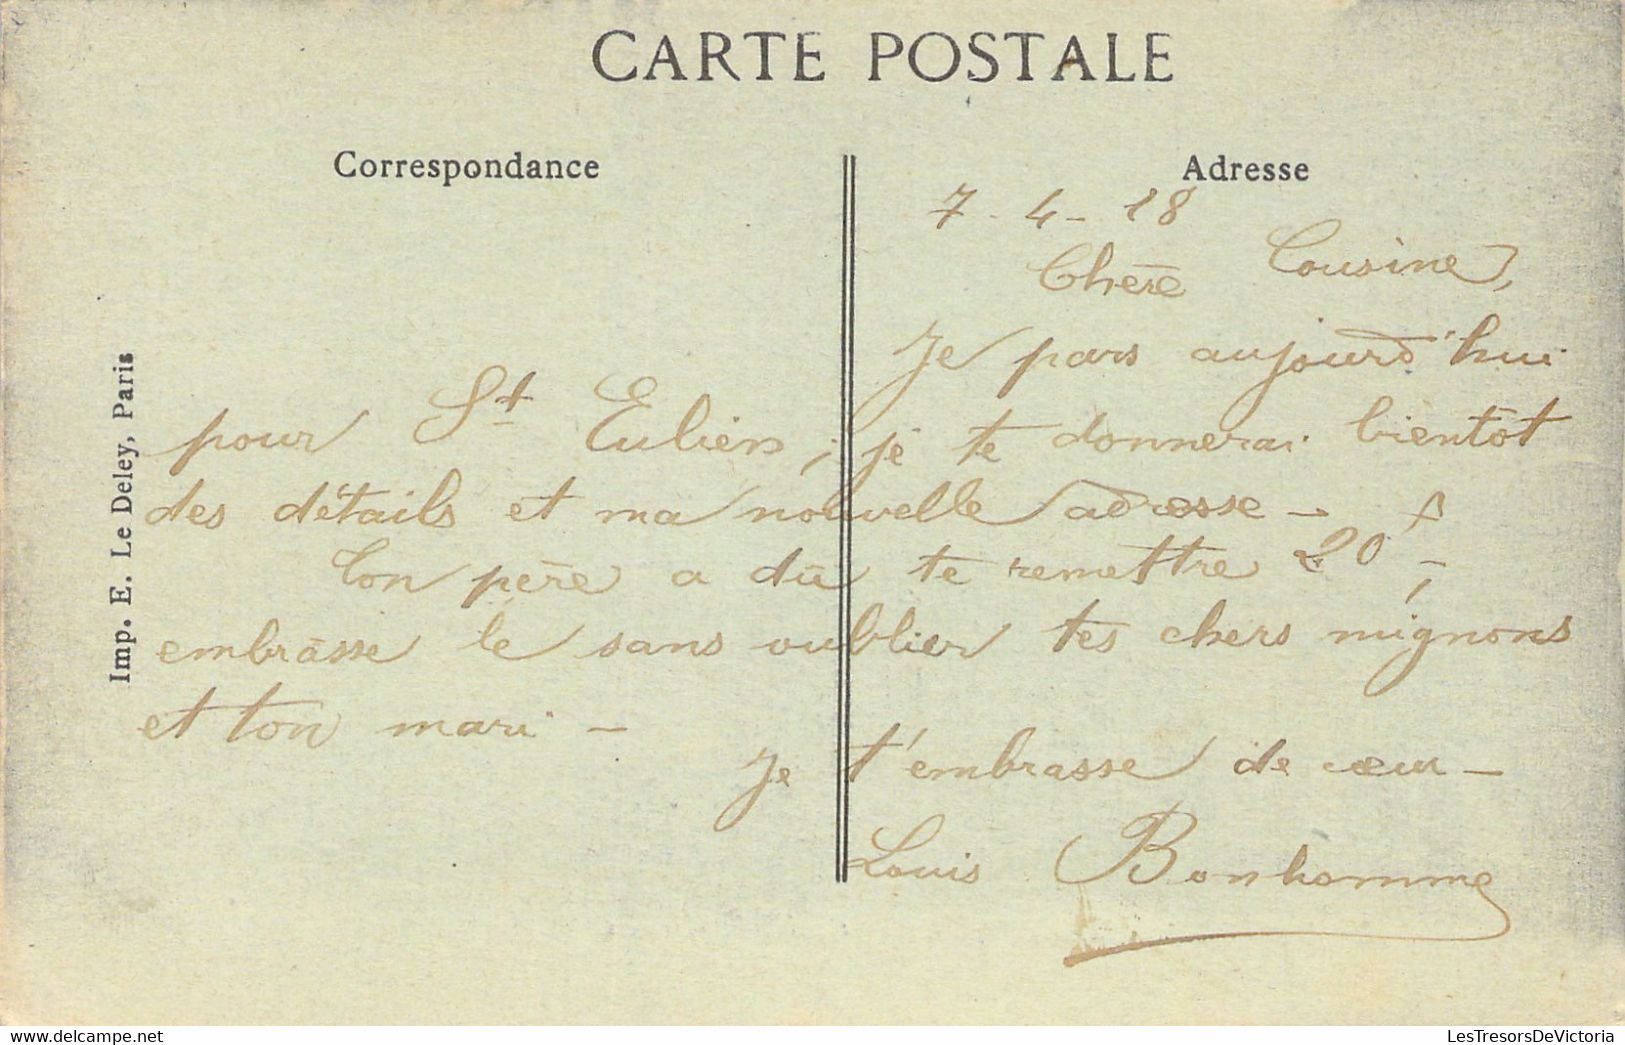 CARTE POSTALE
Correspondance
Adresse
Imp. E. Le Deley, Paris
7-4-18
Chère Cousine,
Je pars aujourd'hui
pour St Eulien, je te donnerai bientôt
des détails et ma nouvelle adresse -
Ton père a dû te remettre 20f,
embrasse le sans oublier tes chers mignons
et ton mari -
Je t'embrasse de cœur -
Louis Bonhomme
LesTresorsDeVictoria
delcampe.net